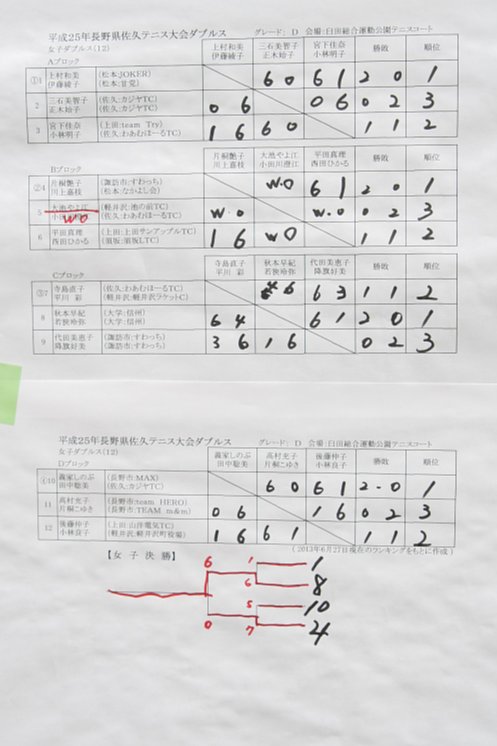 平成25年長野県佐久テニス大会ダブルス グレード: D 会場:臼田総合運動公園テニスコート
女子ダブルス(12)
Aブロック
上村和美 三石美智子 宮下佳奈 勝敗 順位
伊藤綾子 正木始子 小林明子
①1 上村和美 (松本:JOKER) 6 0 6 1 2 0 1
伊藤綾子 (松本:甘党)
2 三石美智子 (佐久:カジヤTC) 0 6 0 6 0 2 3
正木始子 (佐久:カジヤTC)
3 宮下佳奈 (上田:team Try) 1 6 6 0 1 1 2
小林明子 (佐久:わあむほーるTC)
Bブロック
片桐艶子 大池やよ江 平田真理 勝敗 順位
川上嘉枝 小田川澄江 西田ひかる
②4 片桐艶子 (諏訪市:すわっち) W.O 6 1 2 0 1
川上嘉枝 (松本:なかよし会)
5 大池やよ江 (軽井沢:池の前TC) W.O W.O 0 2 3
WO (佐久:わあむほーるTC)
6 平田真理 (上田:上田サンアップルTC) 1 6 WO 1 1 2
西田ひかる (須坂:須坂LTC)
Cブロック
寺島直子 秋本早紀 代田美恵子 勝敗 順位
平川 彩 若狭玲弥 降旗好美
③7 寺島直子 (佐久:わあむほーるTC) 4 6 6 3 1 1 2
平川 彩 (軽井沢:軽井沢ラケットC)
8 秋本早紀 (大学:信州) 6 4 6 1 2 0 1
若狭玲弥 (大学:信州)
9 代田美恵子 (諏訪市:すわっち) 3 6 1 6 0 2 3
降旗好美 (諏訪市:すわっち)
平成25年長野県佐久テニス大会ダブルス グレード: D 会場:臼田総合運動公園テニスコート
女子ダブルス(12)
Dブロック
義家しのぶ 高村充子 後藤仲子 勝敗 順位
田中聡美 片桐こゆき 小林良子
④10 義家しのぶ (長野市:MAX) 6 0 6 1 2-0 1
田中聡美 (佐久:カジヤTC)
11 高村充子 (長野市:team HERO) 0 6 1 6 0 2 3
片桐こゆき (長野市:TEAM m&m)
12 後藤仲子 (上田:山洋電気TC) 1 6 6 1 1 1 2
小林良子 (軽井沢:軽井沢町役場)
(2013年6月27日現在のランキングをもとに作成)
【女 子 決 勝】
6 1 1
6 8
5 10
0 7 4